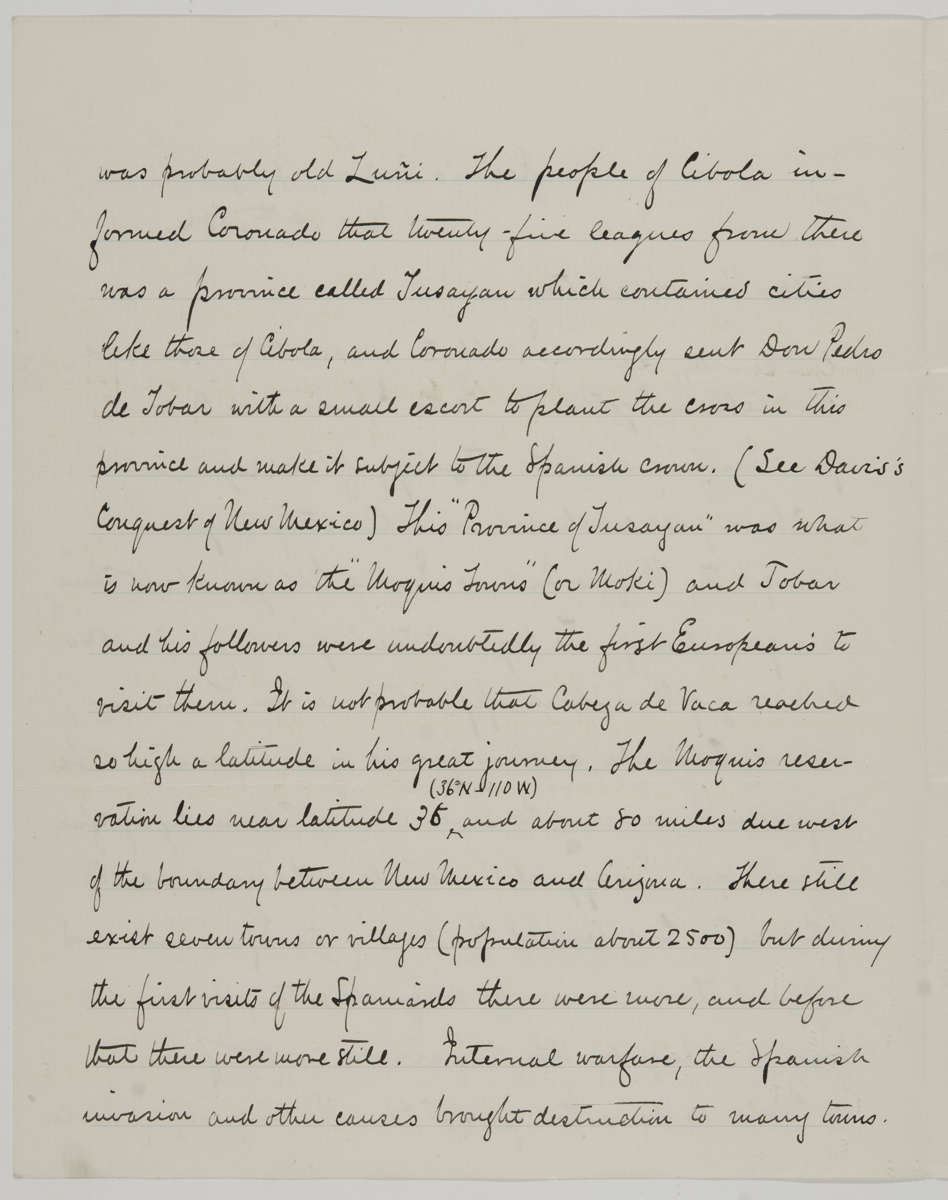 was probably old Zuñi. The people of Cibola in-
formed Coronado that twenty-five leagues from there
was a province called Tusayan which contained cities
like those of Cibola, and Coronado accordingly sent Don Pedro
de Tobar with a small escort to plant the cross in this
province and make it subject to the Spanish crown. (See Davis's
Conquest of New Mexico) This "Province of Tusayan" was what
is now known as the "Moquis Towns" (or Moki) and Tobar
and his followers were undoubtedly the first Europeans to
visit them. It is not probable that Cabeza de Vaca reached
so high a latitude in his great journey. The Moquis reser-
(36°N - 110 W)
vation lies near latitude 36 ‸ and about 80 miles due west
of the boundary between New Mexico and Arizona. There still
exist seven towns or villages (population about 2500) but during
the first visits of the Spaniards there were more, and before
that there were more still. Internal warfare, the Spanish
invasion and other causes brought destruction to many towns.